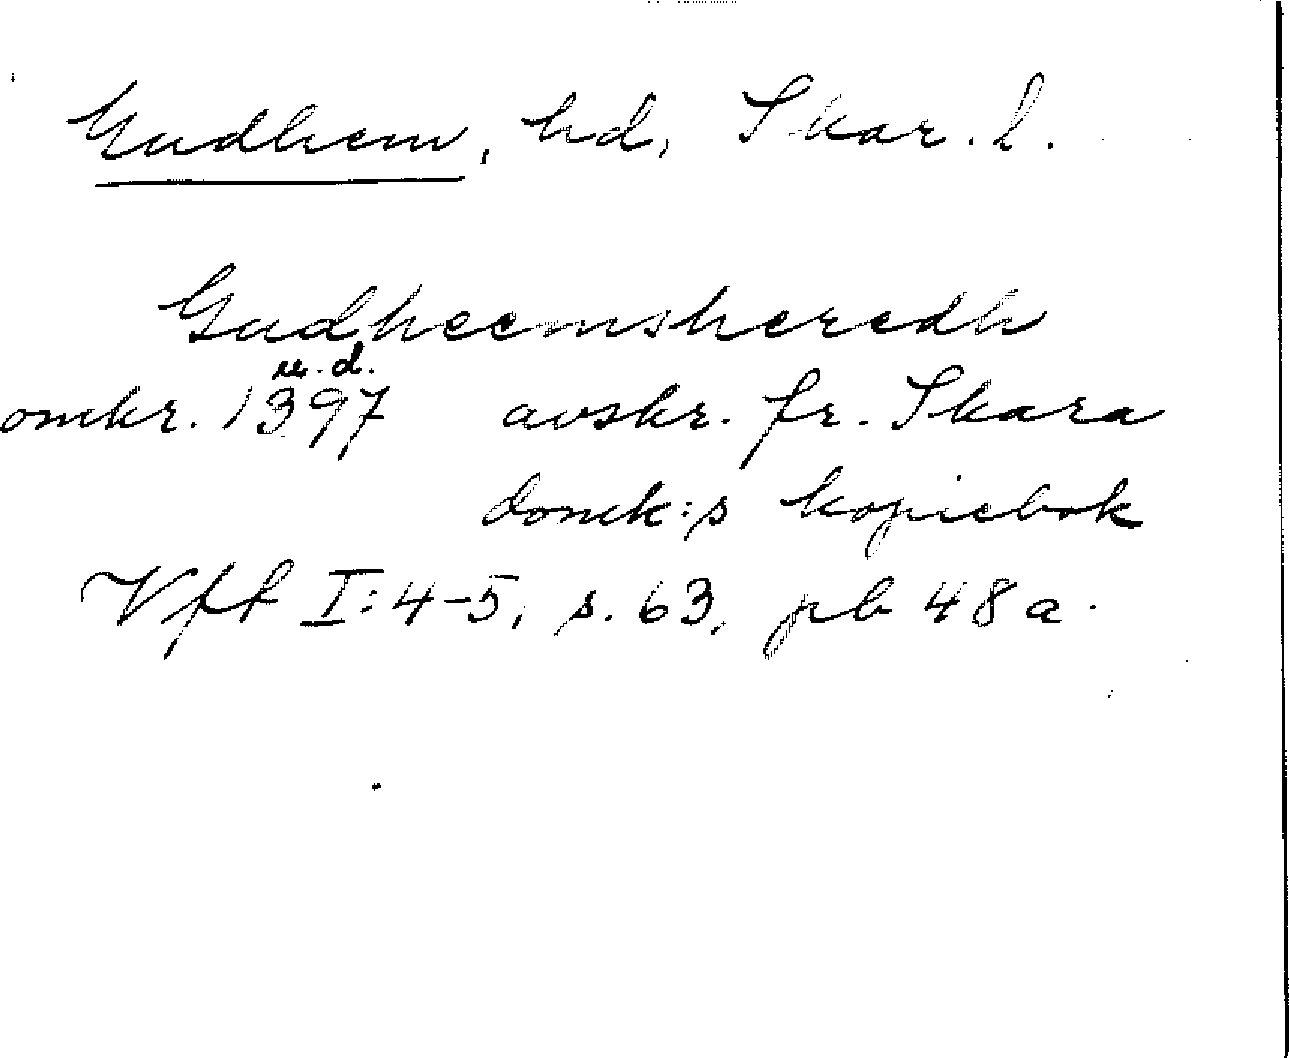 Gudhem, hd, Skar. l.
Gudheemsheredh
u. d.
omkr. 1397 avskr. fr. Skara
domk:s kopiebok
Vft I:4-5, s. 63, pb 48 a.